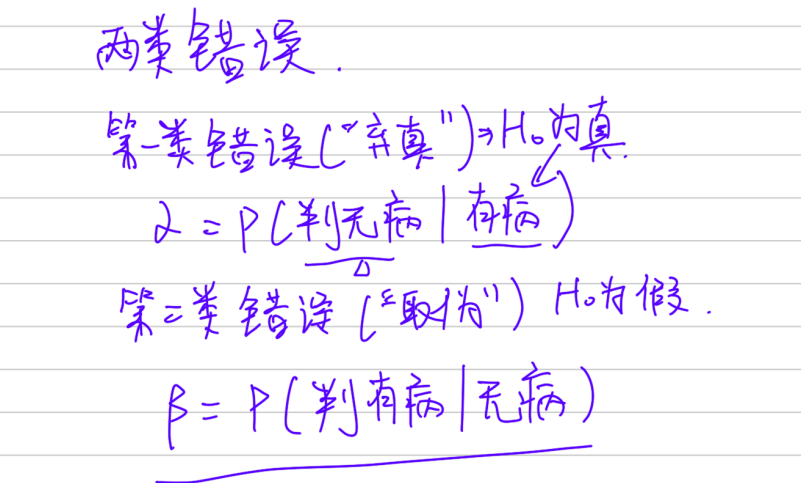 两类错误.
第一类错误("弃真")⇒H₀为真.
α = P(判无病|有病)
第二类错误("取伪") H₀为假.
β = P(判有病|无病)